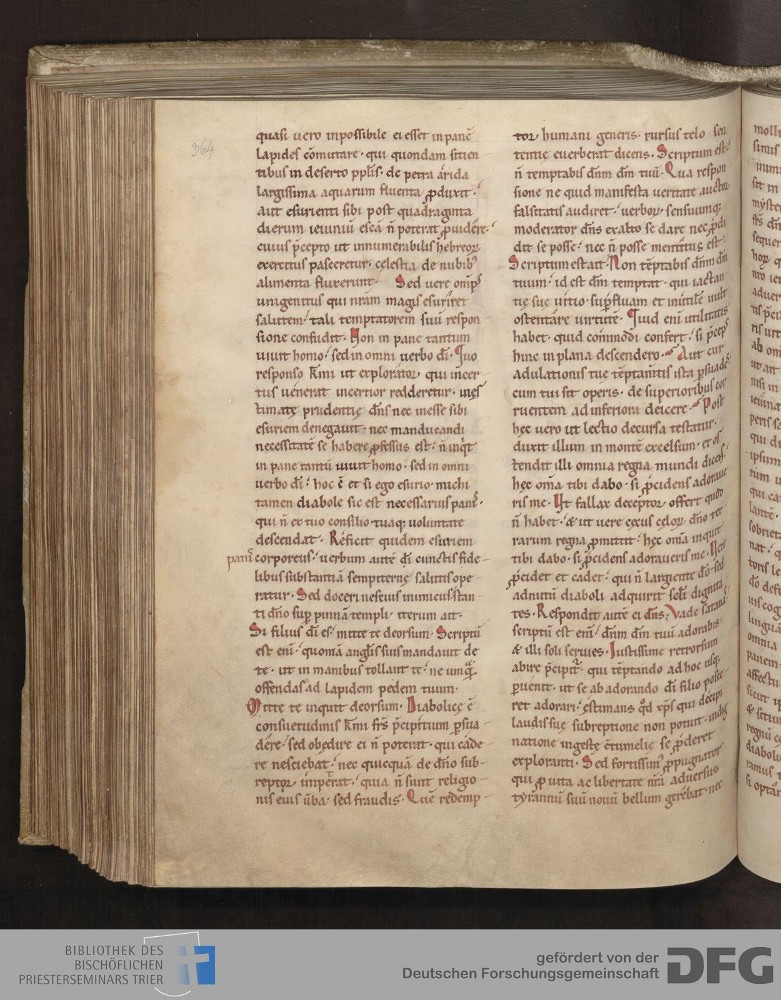 364
quasi uero inpossibile ei esset in pane
lapides cōmutare · qui quondam sitien
tibus in deserto ppl̄is · de petra arida
largissima aquarum fluenta ꝓduxit ·
Aut esurienti sibi post quadraginta
dierum ieiuniū escā n̄ poterat ꝓuidere ·
cuius p̄cepto ut innumerabilis hebreoꝝ
exercitus pasceretur · celestia de nubibꝰ
alimenta fluxerunt · Sed uere
unigenitus qui nr̄am magis esuriret
salutem · tali temptatorem suū respon
sione confudit · Non in pane tantum
uiuit homo · sed in omni uerbo dī · Quo
responso k̄mi ut exploratoꝛ · qui incer
tus uenerat incertior redderetur · ines
timatę prudentię dn̄s nec inesse sibi
esuriem denegauit · nec manducandi
necessitatē se habere ꝓfessus est · n̄ inqͥt
in pane tantū uiuit homo · sed in omni
uerbo dī · hoc ē et si ego esurio · michi
tamen diabole sic est necessarius panis
qui n̄ ex tuo consilio tuaq; uoluntate
descendat · Reficit quidem esuriem
panis corporeus · uerbum autē dī cunctis fide
libus substantiā sempiternę salutis ope
ratur · Sed doceri nescius inimicus · stan
ti dn̄o sup pinnā templi · iterum ait ·
Si filius dī es · mitte te deorsum · Scriptū
est eni · quoniā angl̄is suis mandauit de
te · ut in manibus tollant te · ne unq̄
offendas ad lapidem pedem tuum ·
Mitte te inquit deorsum · Diabolicę ē
consuetudinis k̄mi frs̄ p̄cipitium ꝑsua
dere · sed obędire ei n̄ poterat · qui cade
re nesciebat · nec quicquā de dn̄o sub
reptoꝛ imperat · quia n̄ sunt religio
nis eius uerba · sed fraudis · Quē redemp
tor humani generis · rursus telo sen
tentie euerberat dicens · Scriptum est
n̄ temptabis dn̄m dm̄ tuū · Qua respon
sione ne quid manifesta ueritate auctor
falsitatis audiret · uerboꝝ sensuumq;
moderator dn̄s ex alto se dare nec ꝓdi
dit se posse · nec n̄ posse mentitus est ·
Scriptum est ait · Non tēptabis dn̄m dm̄
tuum · id est dm̄ temptat · qui iactan
tię suę uitio supfluam et inutilē uult
ostentare uirtutē · Quid eni utilitatis
habet · quid commodi confert · si p̄ceps
hinc in plana descendero · Aut cur
adulationis tue tēptantis ista ꝑsuades
cum tui sit operis · de superioribus cor
ruentem ad inferiora deicere · Post
hęc uero ut lectio decursa testatur ·
duxit illum in montē excelsum · et os
tendit illi omnia regna mundi dicens
hęc om̄ia tibi dabo · si ꝓcidens adoraue
ris me · Ut fallax deceptor · offert quod
n̄ habet · & ut uere cecus celoꝝ dn̄o ter
rarum regna ꝓmittit · hęc om̄a inquit
tibi dabo · si ꝓcidens adoraueris me · Non
ꝓcidet et cadet · qui n̄ largiente dō · sed
adnitū diaboli adquirit secl̄i dignita
tes · Respondit autē ei dn̄s · Uade satana
scriptū est eni · dn̄m dm̄ tuū adorabis
& illi soli seruies · Iustissime retrorsum
abire p̄cipit · qui tēptando ad hoc usq;
ꝑuenit · ut se ab adorando dī filio posse
ret adorari · estimans qd̄ xp̄s qui decipi
laudis suę subreptione non potuit · indig
natione ingestę cōtumelię se ꝓderet
exploranti · Sed fortissimꝰ ꝓpugnator
qui ꝓ uita ac libertate nr̄a aduersus
tyrannū suū nouū bellum gerebat · nec
BIBLIOTHEK DES
BISCHÖFLICHEN
PRIESTERSEMINARS TRIER
gefördert von der
Deutschen Forschungsgemeinschaft
DFG